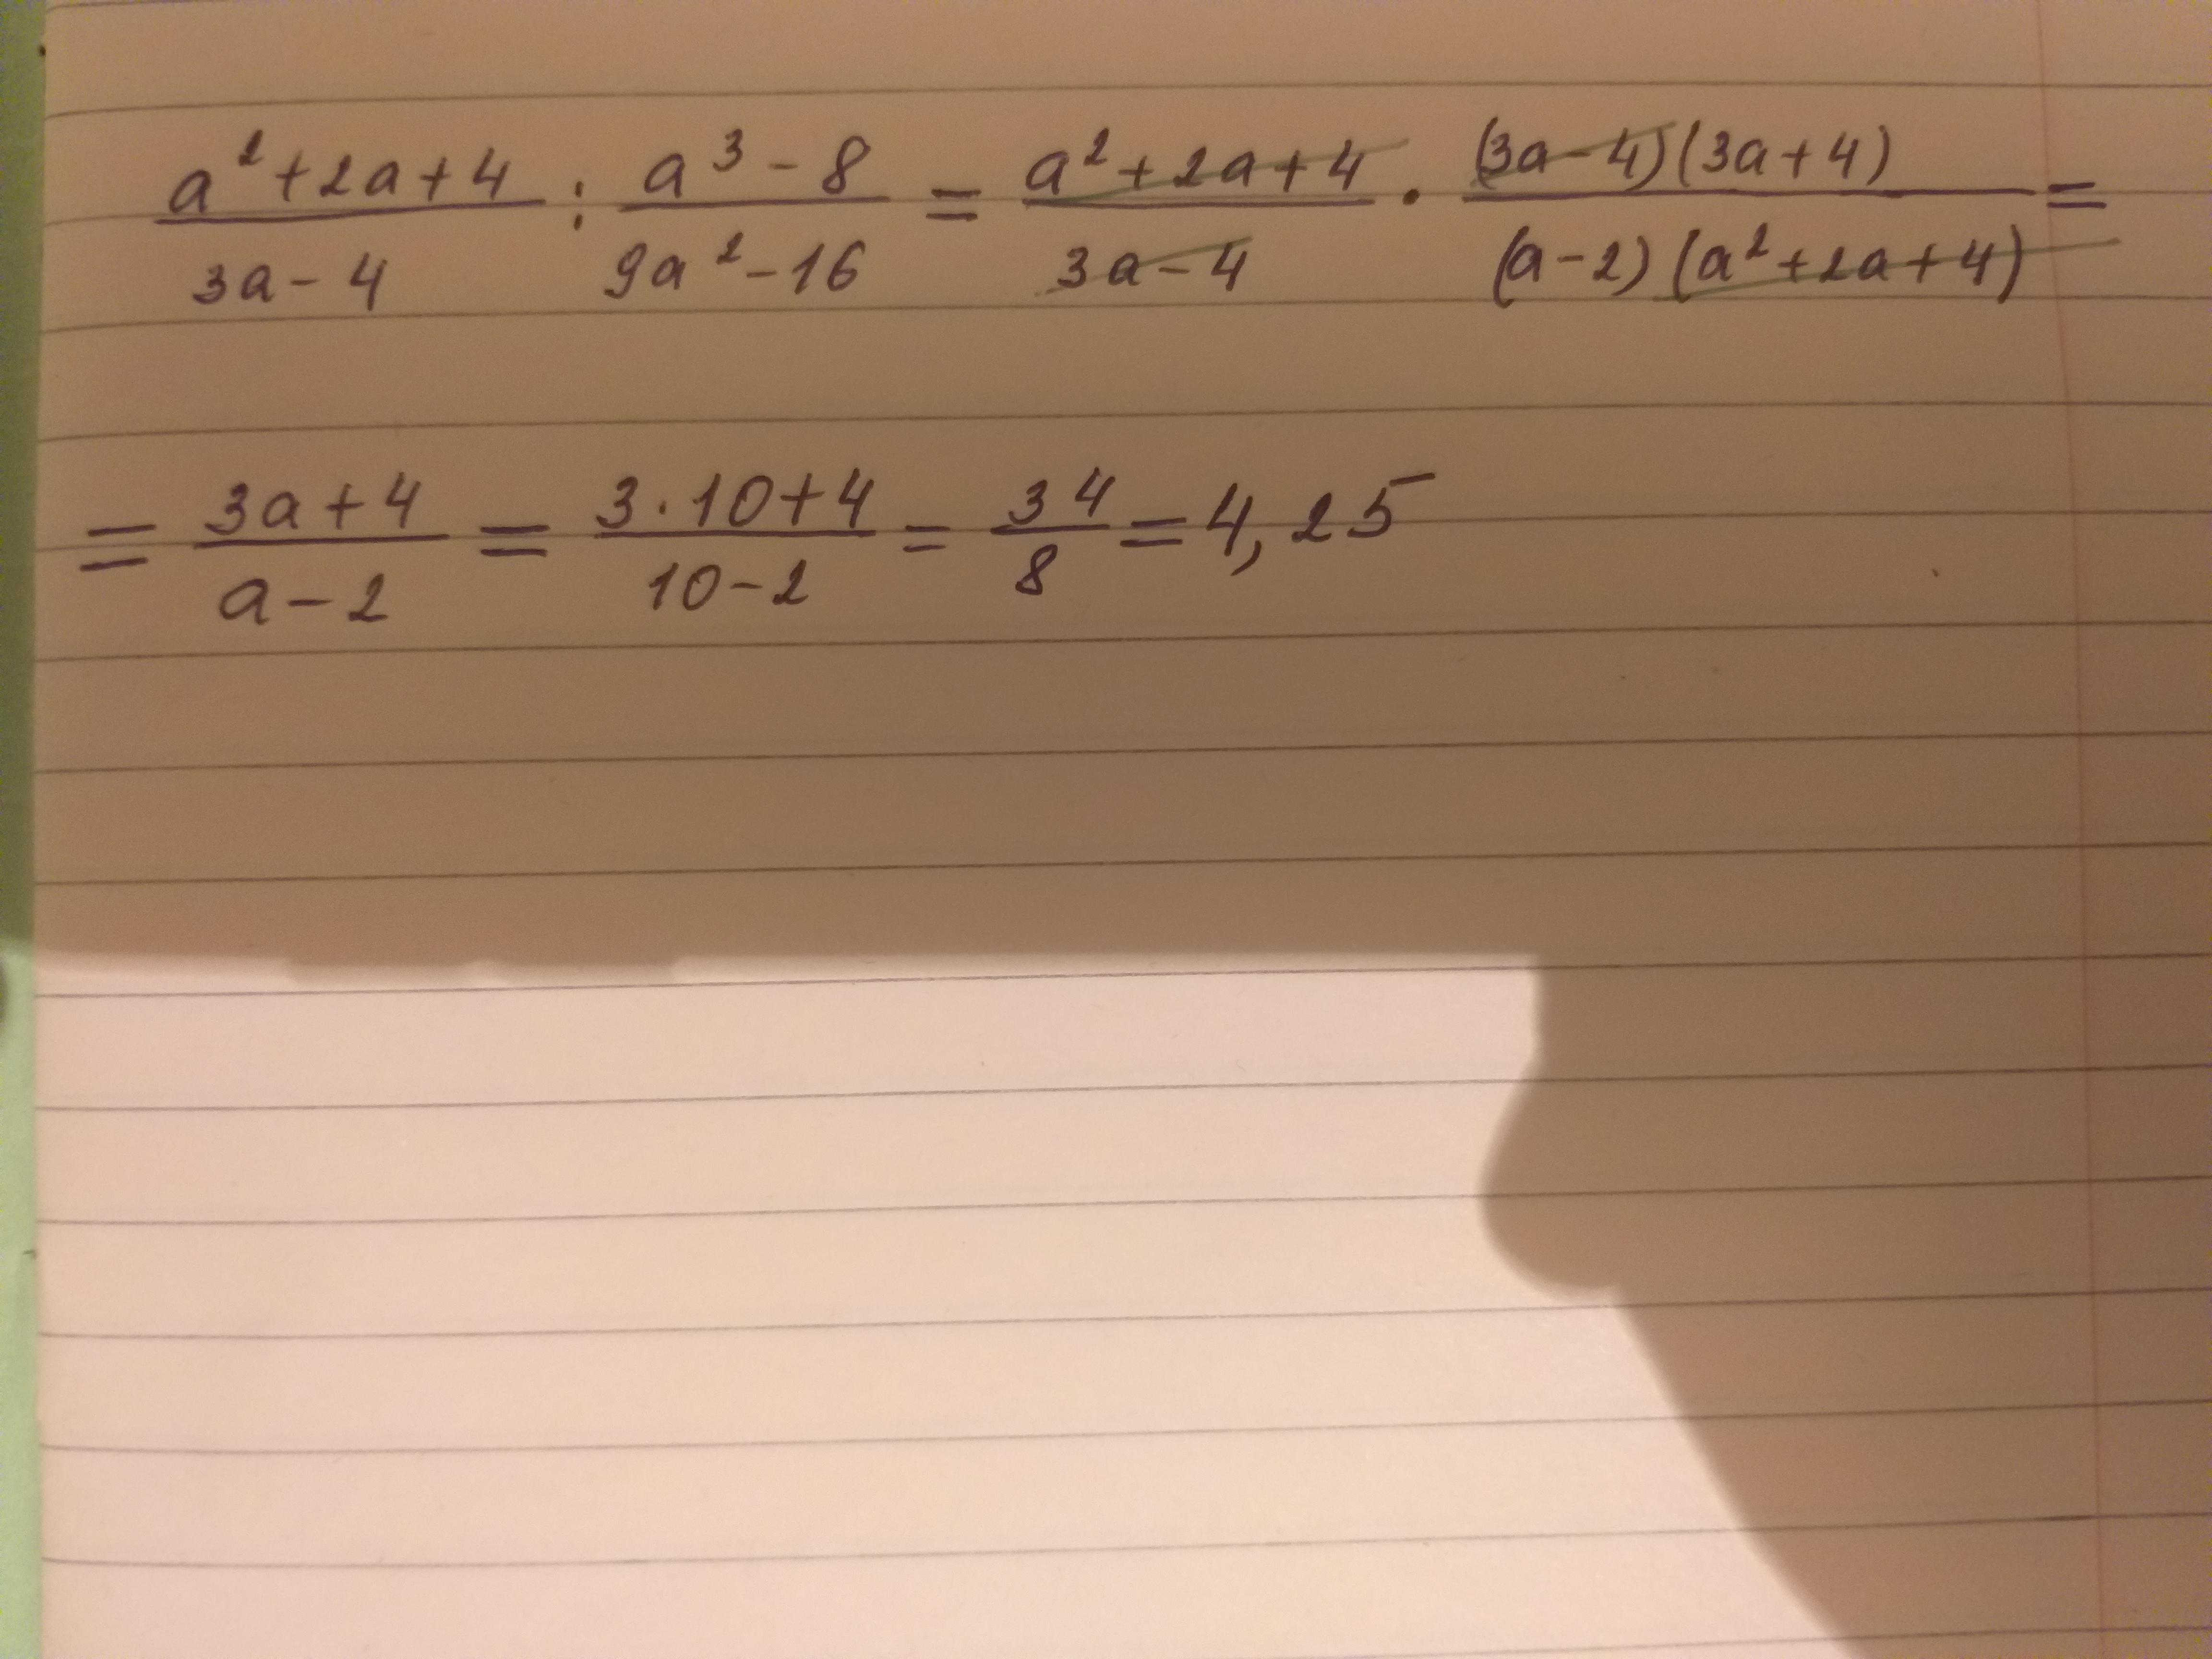 (a² + 2a + 4)/(3a - 4) : (a³ - 8)/(9a² - 16) = (a² + 2a + 4)/(3a - 4) · ((3a - 4)(3a + 4))/((a - 2)(a² + 2a + 4)) =
= (3a + 4)/(a - 2) = (3 · 10 + 4)/(10 - 2) = 34/8 = 4,25